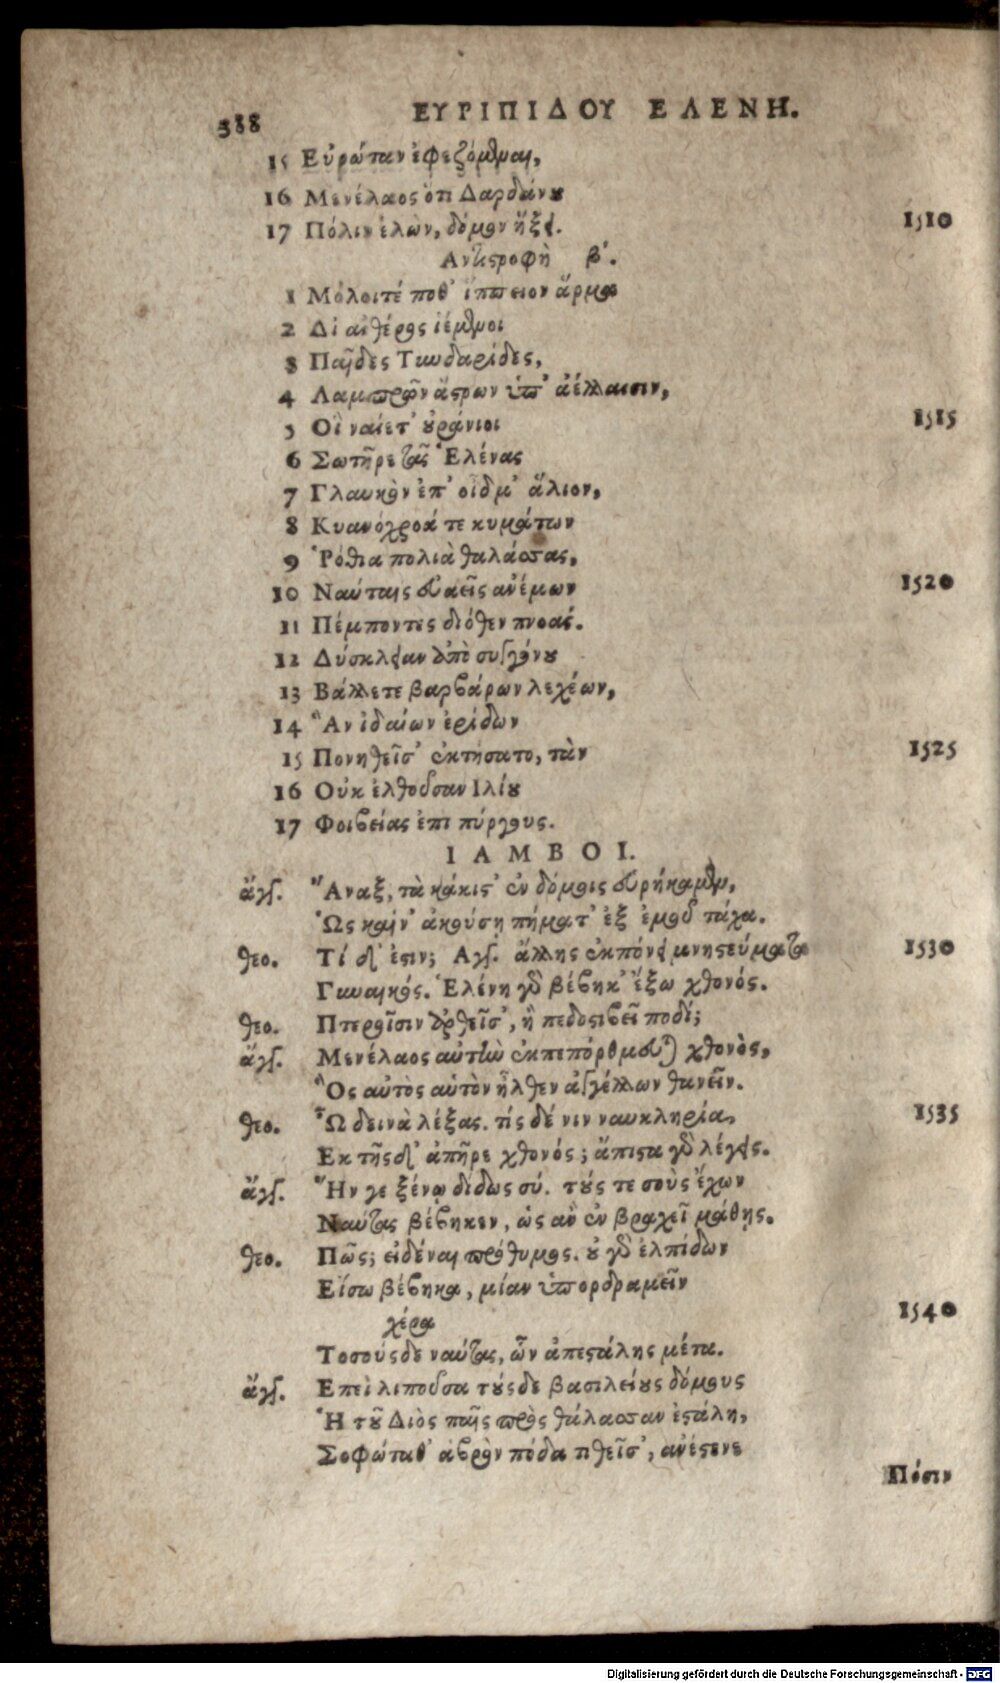 388 ΕΥΡΙΠΙΔΟΥ ΕΛΕΝΗ.
15 Εὐρώταν ἐφεζόμεναι,
16 Μενέλαος ὅτι Δαρδάνου
17 Πόλιν ἑλὼν, δόμον ἥξει. 1510
Αντιστροφὴ β΄.
1 Μόλοιτέ ποθ' ἵππειον ἅρμα
2 Δι αἰθέρος ἱέμενοι
3 Παῖδες Τυνδαρίδες,
4 Λαμπρῶν ἄστρων ὑπ' ἀέλλαισιν,
5 Οἳ ναίετ' οὐράνιοι 1515
6 Σωτῆρε τᾶς Ἑλένας
7 Γλαυκὸν ἐπ' οἶδμ' ἅλιον,
8 Κυανόχροά τε κυμάτων
9 Ῥόθια πολιὰ θαλάσσας,
10 Ναύταις εὐαεῖς ἀνέμων 1520
11 Πέμποντες διόθεν πνοάς.
12 Δύσκλειαν ἀπὸ συγγόνου
13 Βάλλετε βαρβάρων λεχέων,
14 Ἃν ἰδαίων ἐρίδων
15 Πονηθεῖσ' ἐκτήσατο, τὰν 1525
16 Οὐκ ἐλθοῦσαν Ιλίου
17 Φοιβείας ἐπι πύργους.
ΙΑΜΒΟΙ.
ἄγγ. Ἄναξ, τὰ κάκιστ' ἐν δόμοις εὑρήκαμεν,
Ὡς καίν' ἀκούσῃ πήματ' ἐξ ἐμοῦ τάχα.
θεο. Τί δ' ἐστιν; Αγγ. ἄλλης ἐκπόνει μνηστεύματα 1530
Γυναικός. Ἑλένη γὰρ βέβηκ' ἔξω χθονός.
θεο. Πτεροῖσιν ἀρθεῖσ', ἢ πεδοστιβεῖ ποδί;
ἄγγ. Μενέλαος αὐτὴν ἐκπεπόρθμευται χθονὸς,
Ὃς αὐτὸς αὑτὸν ἦλθεν ἀγγέλλων θανεῖν.
θεο. Ὦ δεινὰ λέξας. τίς δέ νιν ναυκληρία, 1535
Εκ τῆς δ' ἀπῆρε χθονός; ἄπιστα γὰρ λέγεις.
ἄγγ. Ἥν γε ξένῳ δίδως σύ. τούς τε σοὺς ἔχων
Ναύτας βέβηκεν, ὡς ἂν ἐν βραχεῖ μάθῃς.
θεο. Πῶς; εἰδέναι πρόθυμος. οὐ γὰρ ἐλπίδων
Εἴσω βέβηκα, μίαν ὑπορδραμεῖν
χέρα 1540
Τοσούςδε ναύτας, ὧν ἀπεστάλης μέτα.
ἄγγ. Επεὶ λιποῦσα τούςδε βασιλείους δόμους
Ἡ τοῦ Διὸς παῖς πρὸς θάλασσαν ἐστάλη,
Σοφώταθ' ἁβρὸν πόδα τιθεῖσ', ἀνέστενε
Πόσιν
Digitalisierung gefördert durch die Deutsche Forschungsgemeinschaft - DFG